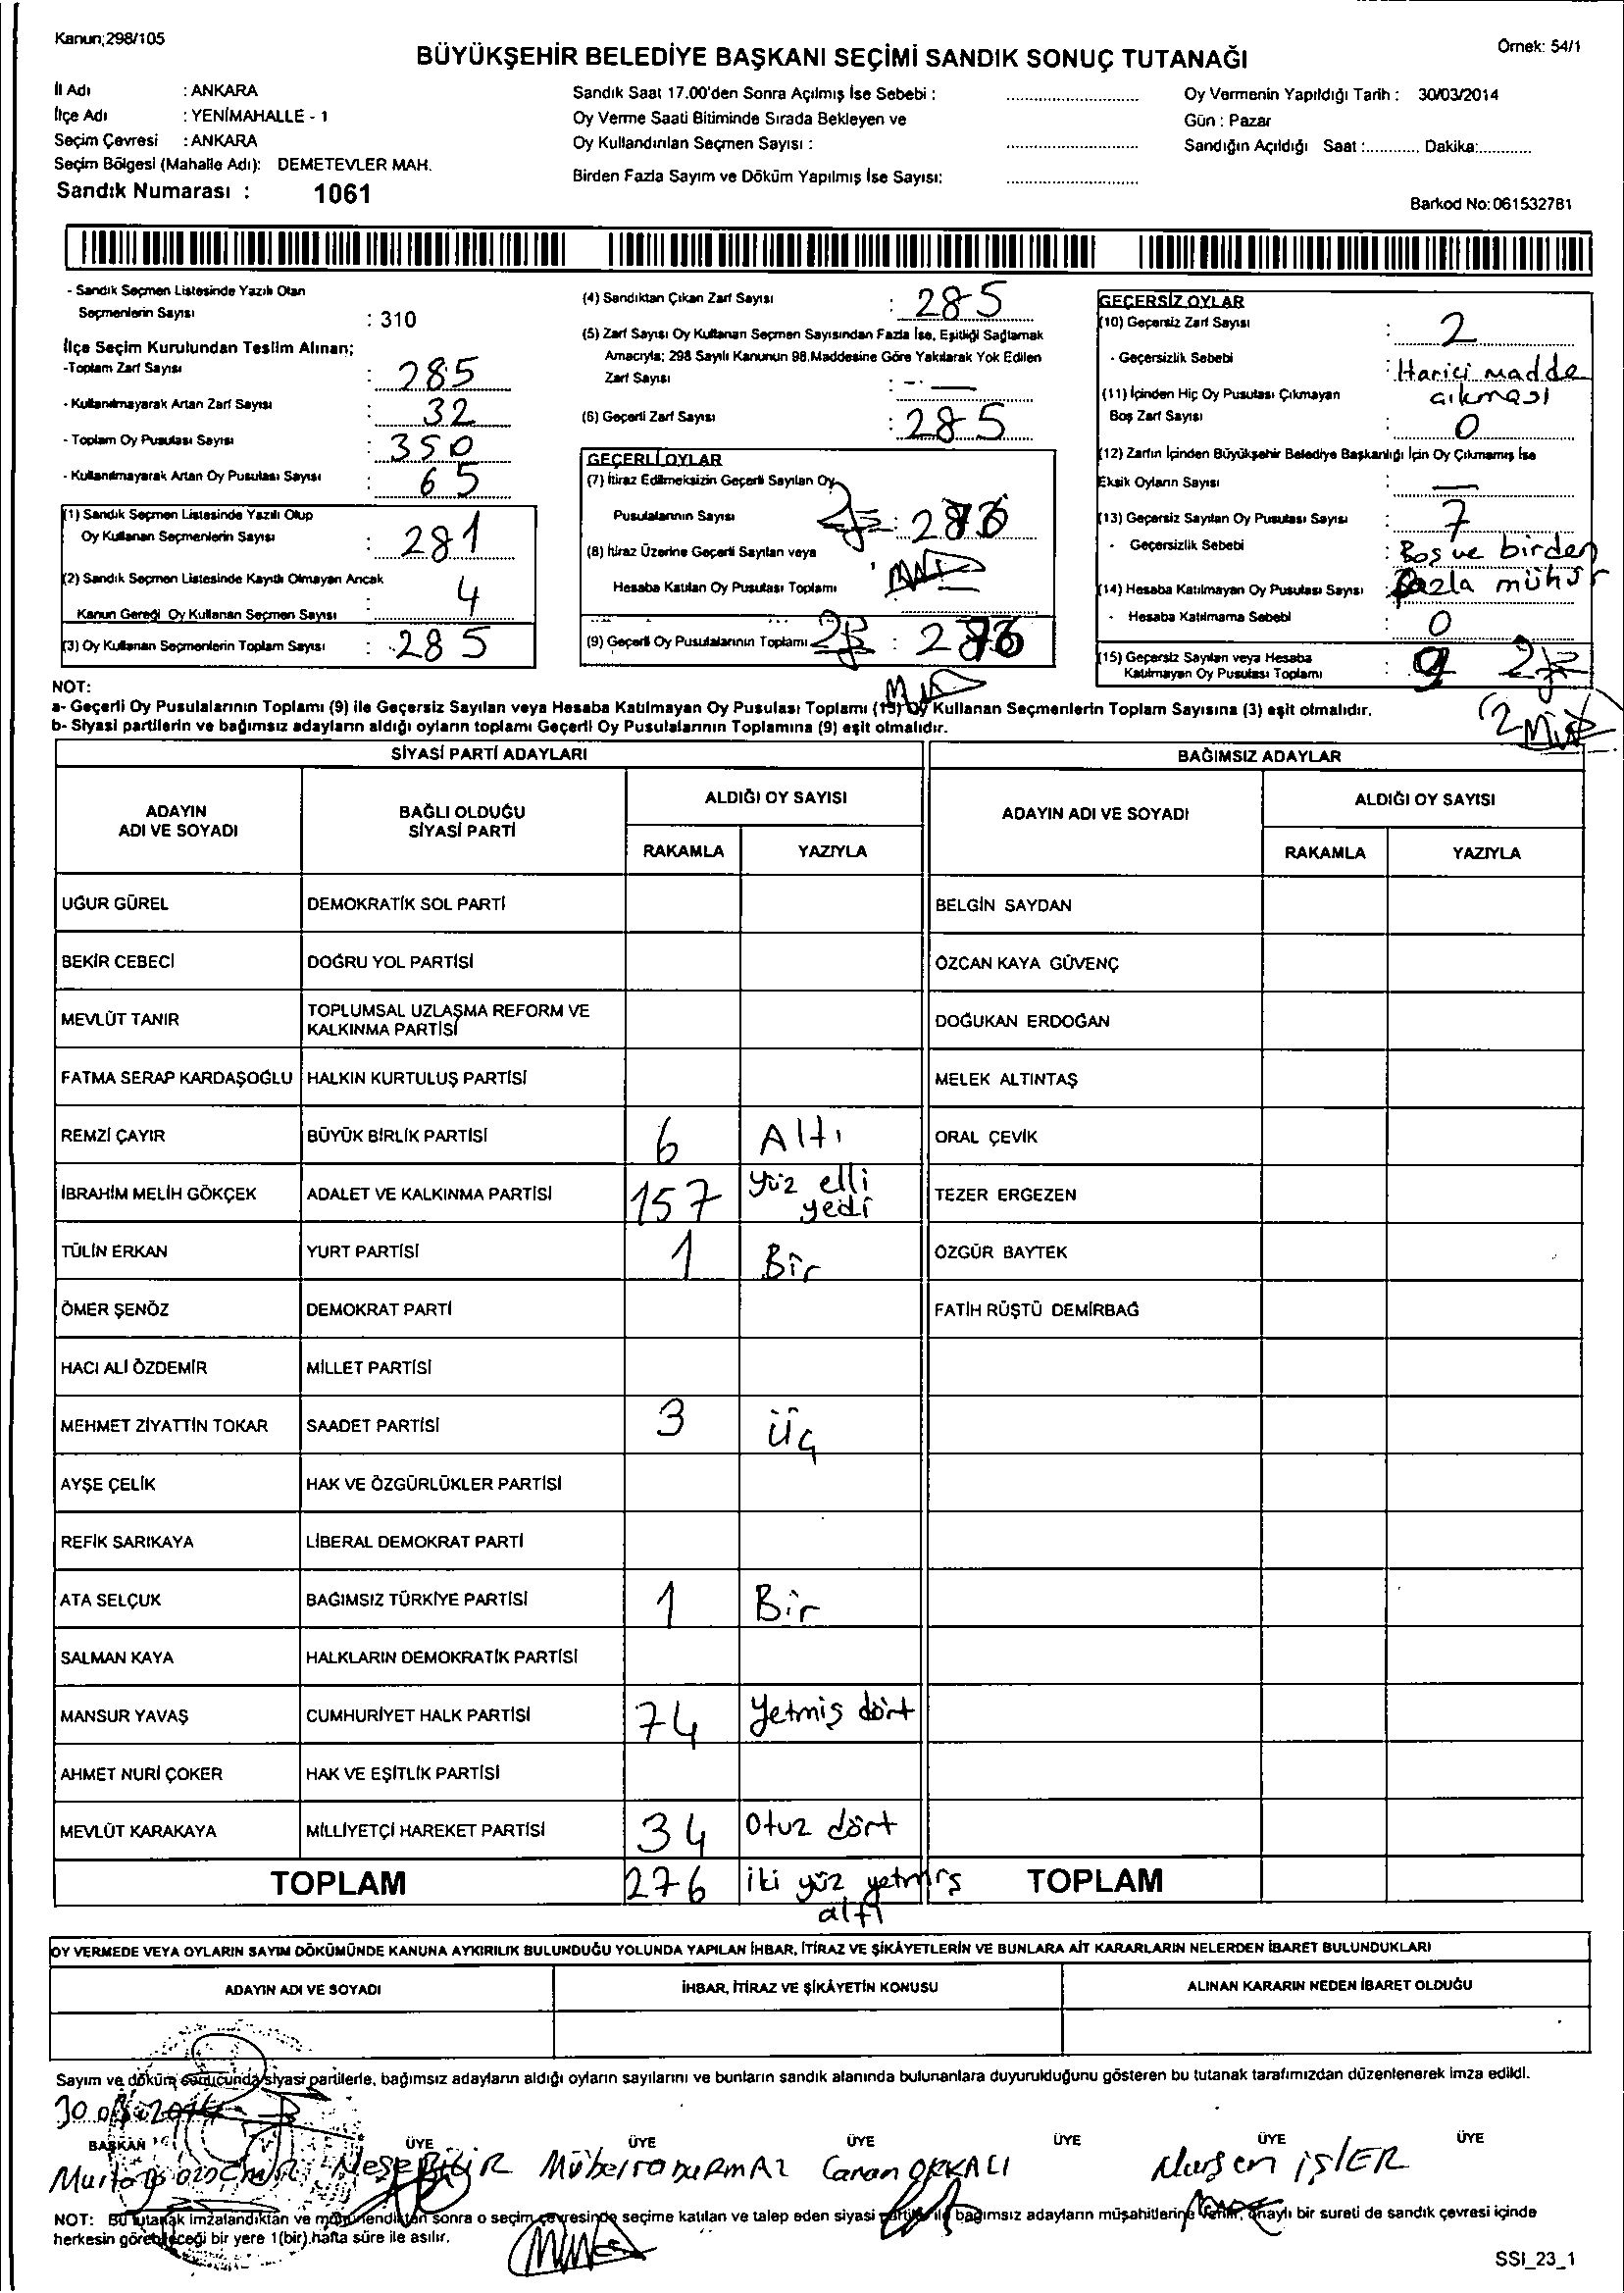 Kanun;298/105
Örnek: 54/1
BÜYÜKŞEHİR BELEDİYE BAŞKANI SEÇİMİ SANDIK SONUÇ TUTANAĞI
İl Adı : ANKARA
İlçe Adı : YENİMAHALLE - 1
Seçim Çevresi : ANKARA
Seçim Bölgesi (Mahalle Adı): DEMETEVLER MAH.
Sandık Numarası : 1061
Sandık Saat 17.00'den Sonra Açılmış İse Sebebi :
Oy Verme Saati Bitiminde Sırada Bekleyen ve
Oy Kullandırılan Seçmen Sayısı :
Birden Fazla Sayım ve Döküm Yapılmış İse Sayısı:
Oy Vermenin Yapıldığı Tarih : 30/03/2014
Gün : Pazar
Sandığın Açıldığı Saat :............ Dakika:............
Barkod No:061532781
- Sandık Seçmen Listesinde Yazılı Olan
Seçmenlerin Sayısı : 310
İlçe Seçim Kurulundan Teslim Alınan;
-Toplam Zarf Sayısı : 285
- Kullanılmayarak Artan Zarf Sayısı : 32
- Toplam Oy Pusulası Sayısı : 350
- Kullanılmayarak Artan Oy Pusulası Sayısı : 65
(1) Sandık Seçmen Listesinde Yazılı Olup
Oy Kullanan Seçmenlerin Sayısı : 281
(2) Sandık Seçmen Listesinde Kayıtlı Olmayan Ancak
Kanun Gereği Oy Kullanan Seçmen Sayısı : 4
(3) Oy Kullanan Seçmenlerin Toplam Sayısı : 285
(4) Sandıktan Çıkan Zarf Sayısı : 285
(5) Zarf Sayısı Oy Kullanan Seçmen Sayısından Fazla İse, Eşitliği Sağlamak
Amacıyla; 298 Sayılı Kanunun 98.Maddesine Göre Yakılarak Yok Edilen
Zarf Sayısı : -
(6) Geçerli Zarf Sayısı : 285
GEÇERLİ OYLAR
(7) İtiraz Edilmeksizin Geçerli Sayılan Oy
Pusulalarının Sayısı :
(8) İtiraz Üzerine Geçerli Sayılan veya
Hesaba Katılan Oy Pusulası Toplamı
(9) Geçerli Oy Pusulalarının Toplamı :
GEÇERSİZ OYLAR
(10) Geçersiz Zarf Sayısı : 2
- Geçersizlik Sebebi : Harici madde
çıkması
(11) İçinden Hiç Oy Pusulası Çıkmayan
Boş Zarf Sayısı : 0
(12) Zarfın İçinden Büyükşehir Belediye Başkanlığı İçin Oy Çıkmamış İse
Eksik Oyların Sayısı : —
(13) Geçersiz Sayılan Oy Pusulası Sayısı : 7
- Geçersizlik Sebebi : Boş ve birden
fazla mühür
(14) Hesaba Katılmayan Oy Pusulası Sayısı :
- Hesaba Katılmama Sebebi : 0
(15) Geçersiz Sayılan veya Hesaba
Katılmayan Oy Pusulası Toplamı : 9
NOT:
a- Geçerli Oy Pusulalarının Toplamı (9) ile Geçersiz Sayılan veya Hesaba Katılmayan Oy Pusulası Toplamı (15) Oy Kullanan Seçmenlerin Toplam Sayısına (3) eşit olmalıdır.
b- Siyasi partilerin ve bağımsız adayların aldığı oyların toplamı Geçerli Oy Pusulalarının Toplamına (9) eşit olmalıdır.
SİYASİ PARTİ ADAYLARI BAĞIMSIZ ADAYLAR
ADAYIN ADI VE SOYADI BAĞLI OLDUĞU SİYASİ PARTİ ALDIĞI OY SAYISI ADAYIN ADI VE SOYADI ALDIĞI OY SAYISI
RAKAMLA YAZIYLA RAKAMLA YAZIYLA
UĞUR GÜREL DEMOKRATİK SOL PARTİ BELGİN SAYDAN
BEKİR CEBECİ DOĞRU YOL PARTİSİ ÖZCAN KAYA GÜVENÇ
MEVLÜT TANIR TOPLUMSAL UZLAŞMA REFORM VE KALKINMA PARTİSİ DOĞUKAN ERDOĞAN
FATMA SERAP KARDAŞOĞLU HALKIN KURTULUŞ PARTİSİ MELEK ALTINTAŞ
REMZİ ÇAYIR BÜYÜK BİRLİK PARTİSİ 6 Altı ORAL ÇEVİK
İBRAHİM MELİH GÖKÇEK ADALET VE KALKINMA PARTİSİ 157 yüz elli yedi TEZER ERGEZEN
TÜLİN ERKAN YURT PARTİSİ 1 Bir ÖZGÜR BAYTEK
ÖMER ŞENÖZ DEMOKRAT PARTİ FATİH RÜŞTÜ DEMİRBAĞ
HACI ALİ ÖZDEMİR MİLLET PARTİSİ
MEHMET ZİYATTİN TOKAR SAADET PARTİSİ 3 üç
AYŞE ÇELİK HAK VE ÖZGÜRLÜKLER PARTİSİ
REFİK SARIKAYA LİBERAL DEMOKRAT PARTİ
ATA SELÇUK BAĞIMSIZ TÜRKİYE PARTİSİ 1 Bir
SALMAN KAYA HALKLARIN DEMOKRATİK PARTİSİ
MANSUR YAVAŞ CUMHURİYET HALK PARTİSİ 74 Yetmiş dört
AHMET NURİ ÇOKER HAK VE EŞİTLİK PARTİSİ
MEVLÜT KARAKAYA MİLLİYETÇİ HAREKET PARTİSİ 34 Otuz dört
TOPLAM 276 iki yüz yetmiş altı TOPLAM
OY VERMEDE VEYA OYLARIN SAYIM DÖKÜMÜNDE KANUNA AYKIRILIK BULUNDUĞU YOLUNDA YAPILAN İHBAR, İTİRAZ VE ŞİKÂYETLERİN VE BUNLARA AİT KARARLARIN NELERDEN İBARET BULUNDUKLARI
ADAYIN ADI VE SOYADI İHBAR, İTİRAZ VE ŞİKÂYETİN KONUSU ALINAN KARARIN NEDEN İBARET OLDUĞU
Sayım ve döküm sonucunda siyasi partilerle, bağımsız adayların aldığı oyların sayılarını ve bunların sandık alanında bulunanlara duyurulduğunu gösteren bu tutanak tarafımızdan düzenlenerek imza edildi.
BAŞKAN ÜYE ÜYE ÜYE ÜYE ÜYE ÜYE
Neşe BİLİR Müberra DURMAZ Canan Nurşen İŞLER
NOT: Bu tutanak imzalandıktan ve mühürlendikten sonra o seçim çevresinde seçime katılan ve talep eden siyasi partiler ile bağımsız adayların müşahitlerine verilir, onaylı bir sureti de sandık çevresi içinde
herkesin görebileceği bir yere 1(bir) hafta süre ile asılır.
SSI_23_1